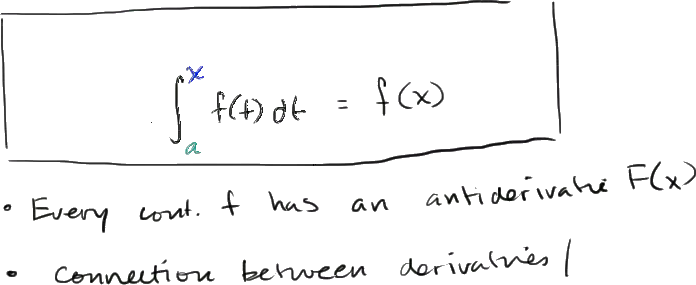 ∫ₐˣ f(t) dt = f(x)
• Every cont. f has an antiderivative F(x)
• Connection between derivatives /